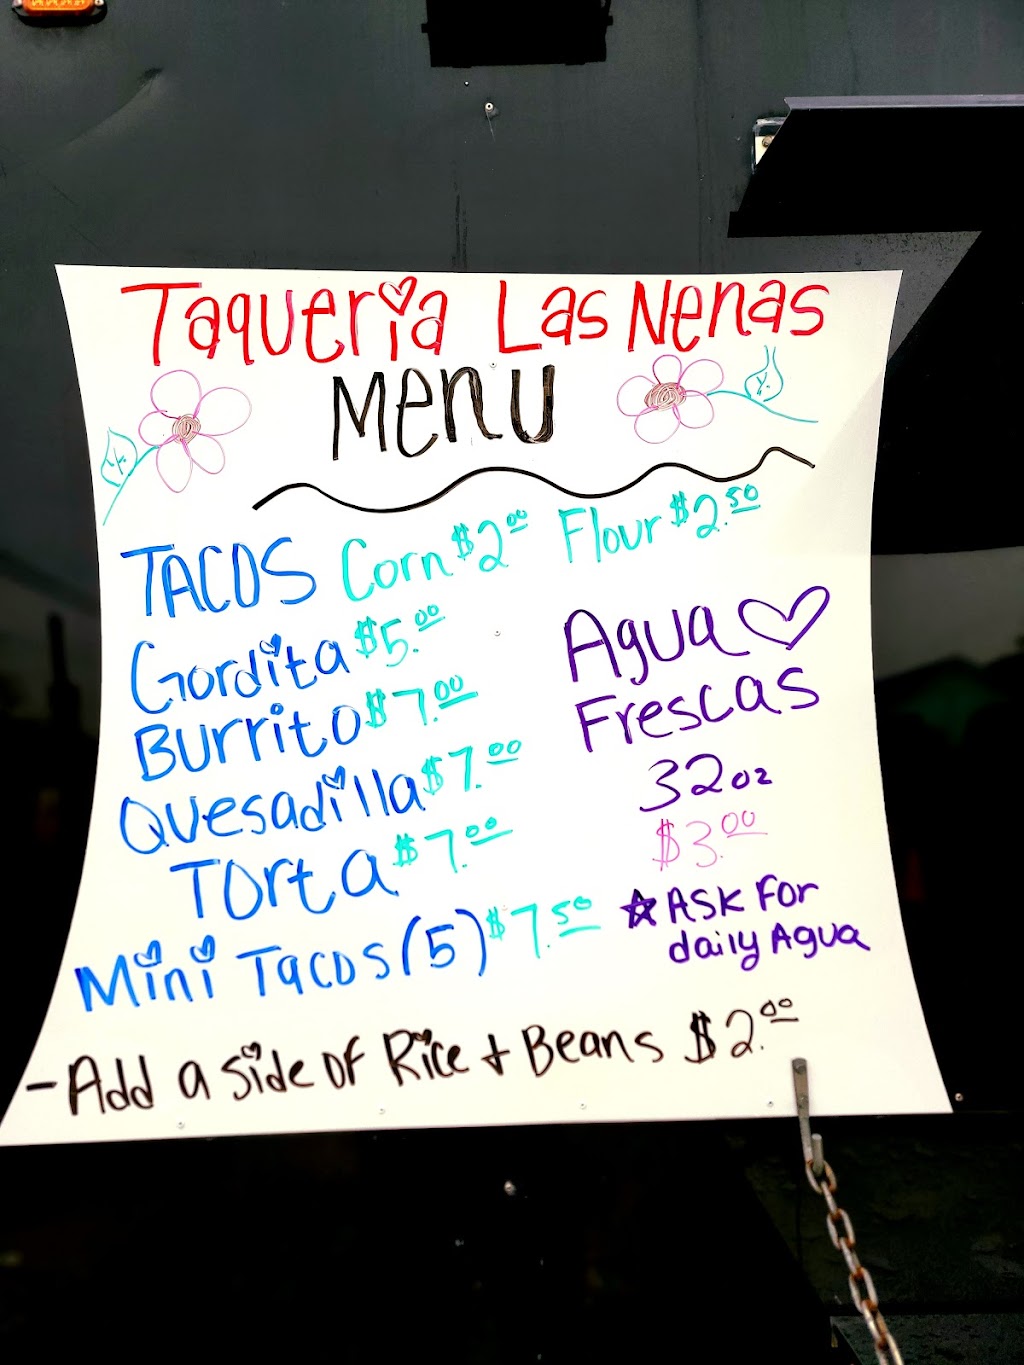 Taqueria Las Nenas
Menu
TACOS Corn $2.00 Flour $2.50
Gordita $5.00
Burrito $7.00
Quesadilla $7.00
Torta $7.00
Mini Tacos (5) $7.50
Agua
Frescas
32oz
$3.00
☆ Ask For
daily Agua
- Add a side of Rice + Beans $2.00